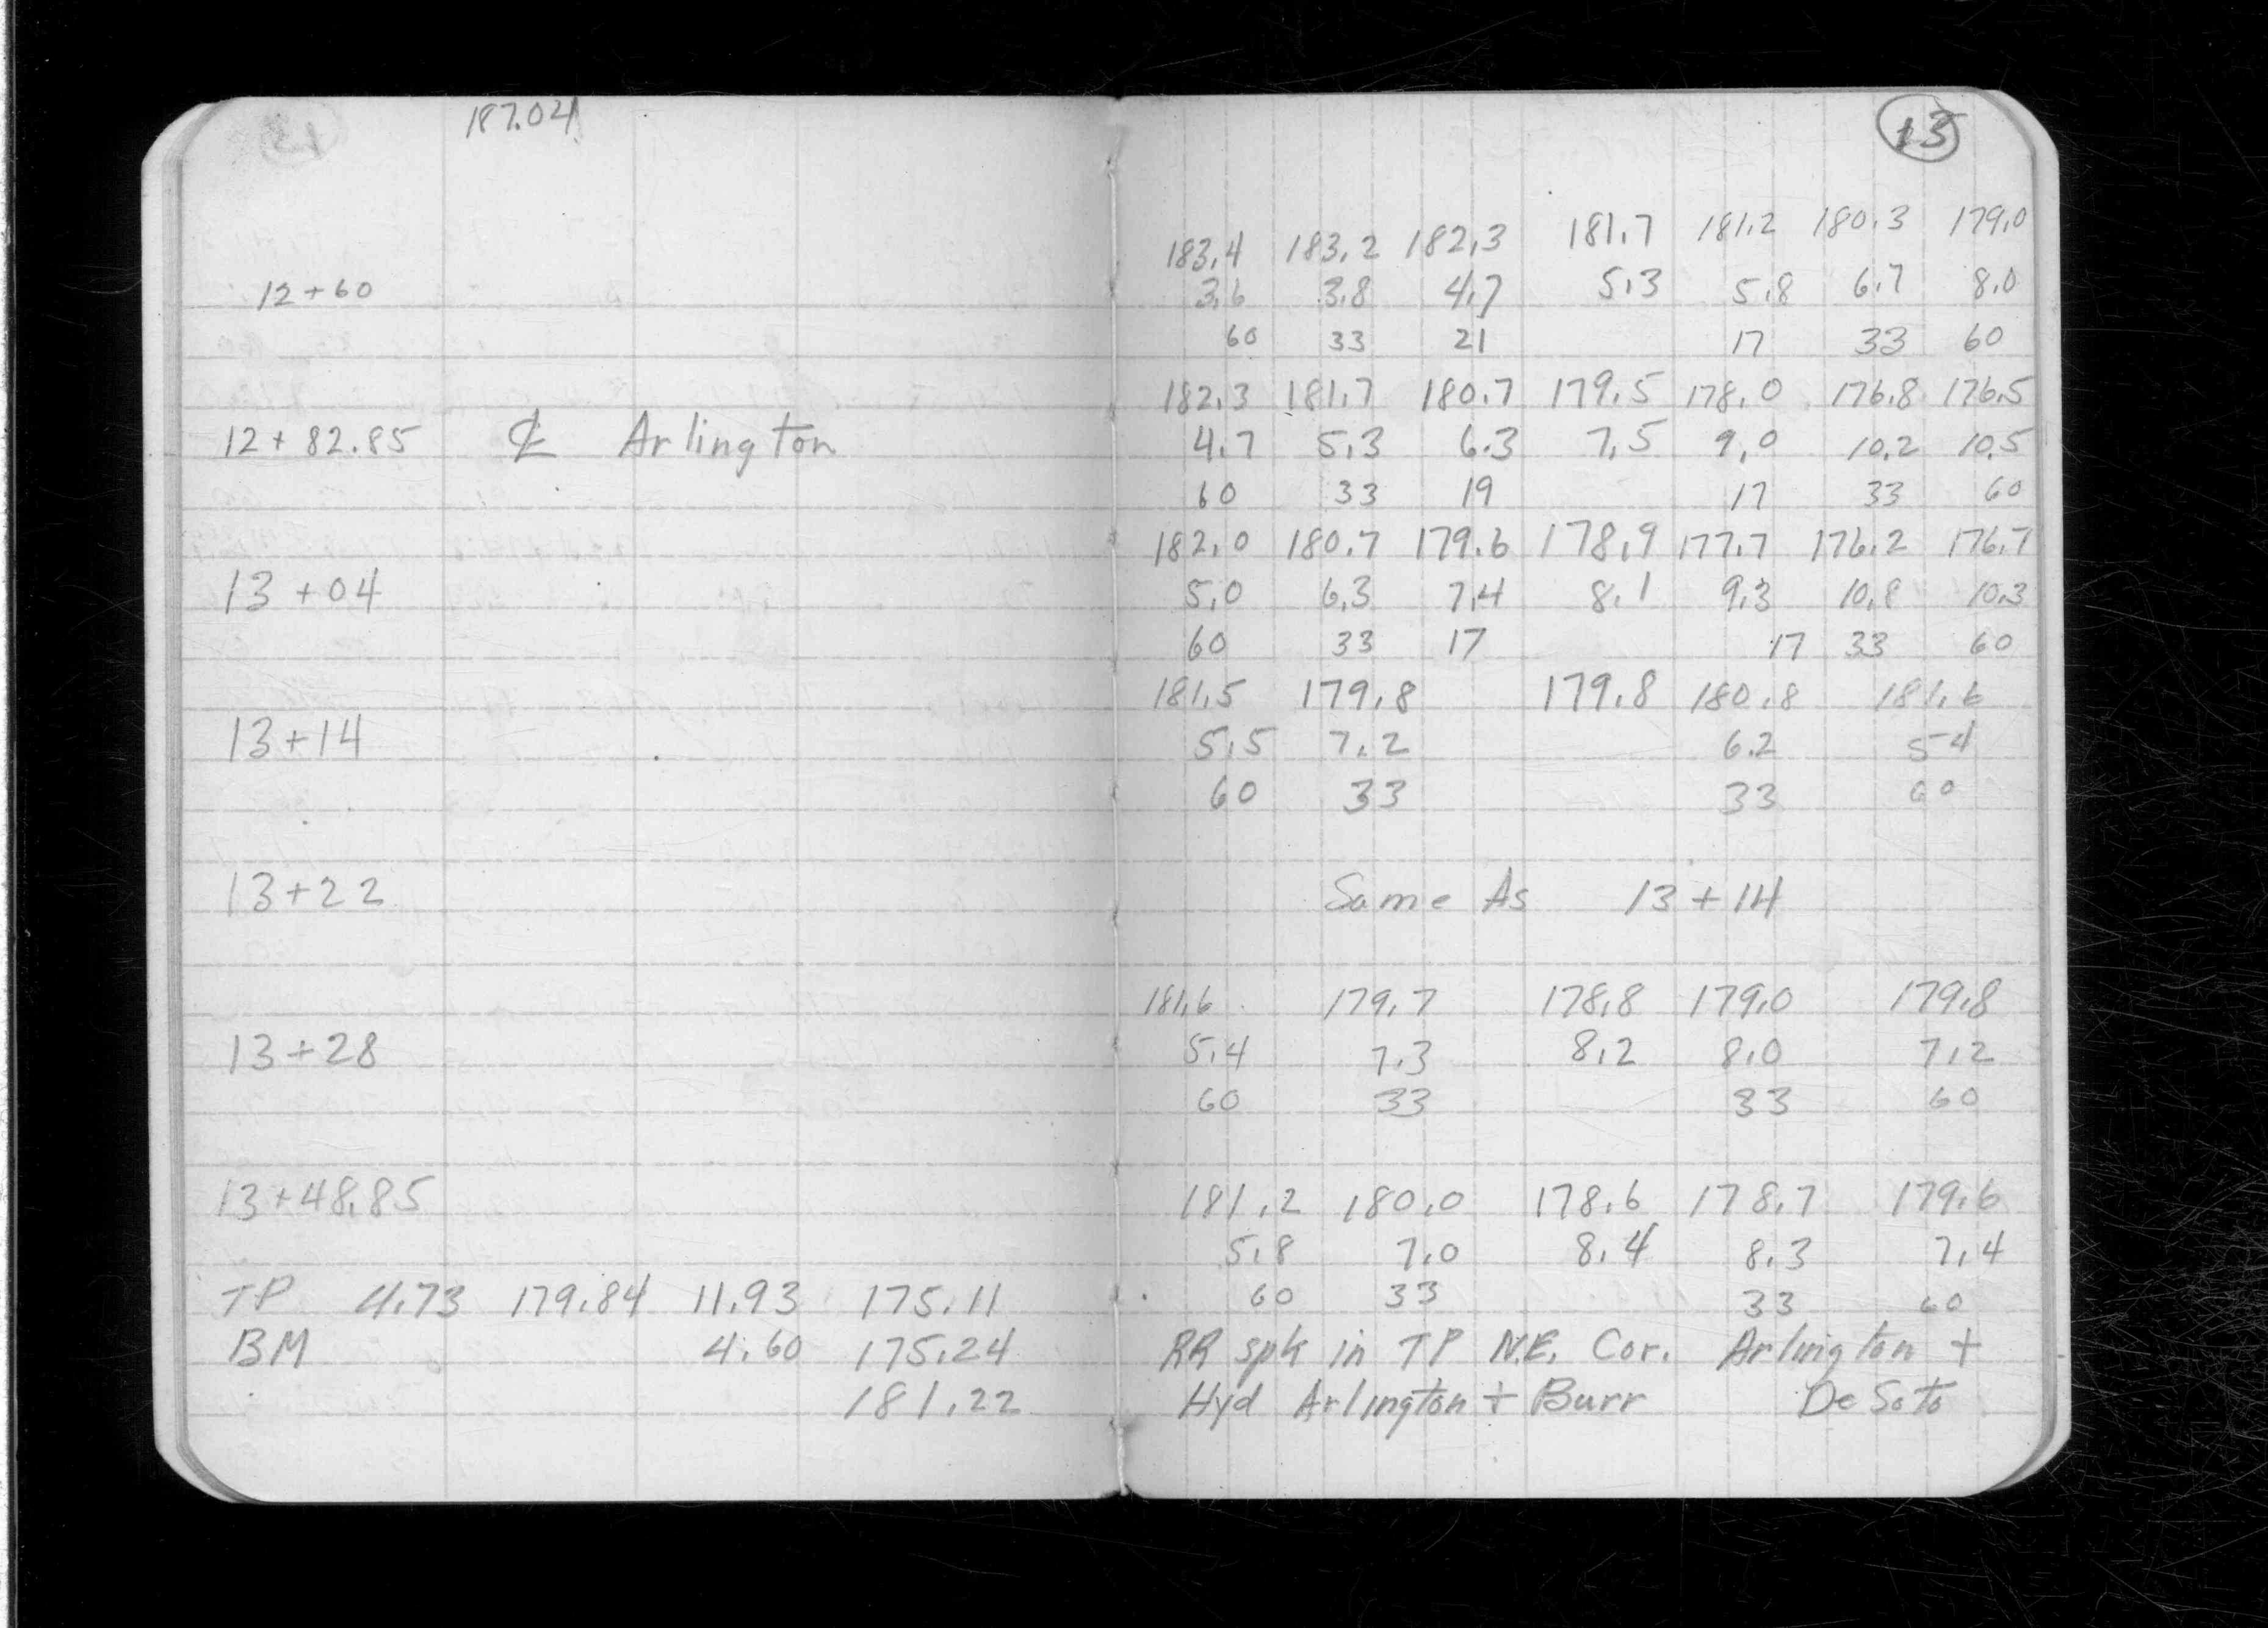 187.04
12+60
12+82.85 ℄ Arlington
13+04
13+14
13+22
13+28
13+48.85
TP 4.73 179.84 11.93 175.11
BM 4.60 175.24
181.22
13
183.4 183.2 182.3 181.7 181.2 180.3 179.0
3.6 3.8 4.7 5.3 5.8 6.7 8.0
60 33 21 17 33 60
182.3 181.7 180.7 179.5 178.0 176.8 176.5
4.7 5.3 6.3 7.5 9.0 10.2 10.5
60 33 19 17 33 60
182.0 180.7 179.6 178.9 177.7 176.2 176.7
5.0 6.3 7.4 8.1 9.3 10.8 10.3
60 33 17 17 33 60
181.5 179.8 179.8 180.8 181.6
5.5 7.2 6.2 54
60 33 33 60
Same As 13+14
181.6 179.7 178.8 179.0 179.8
5.4 7.3 8.2 8.0 7.2
60 33 33 60
181.2 180.0 178.6 178.7 179.6
5.8 7.0 8.4 8.3 7.4
60 33 33 60
RR spk in TP N.E. Cor. Arlington +
Hyd Arlington + Burr De Soto